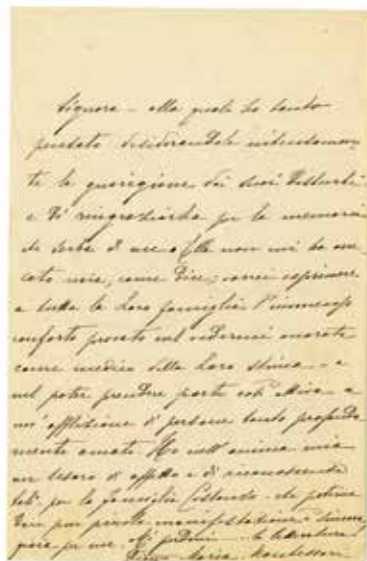 Signora – alla quale ho tanto
pensato desiderandole intensamen
te la guarigione dei suoi disturbi
e di ringraziarla per la memoria
che serba di me. Ella non mi ha
cato noia, come dice; vorrei esprimere
a tutta la Loro famiglia l'immenso
conforto provato nel vedermi onorata
come medico della Loro stima – e
nel poter prendere parte così attiva a
un'afflizione di persone tanto profonda
mente amate. Ho nell'anima mia
un tesoro di affetto e di riconoscenza
per la famiglia che potrà
dare pur piccole manifestazioni
per me. Mi perdoni la
Maria Montessori